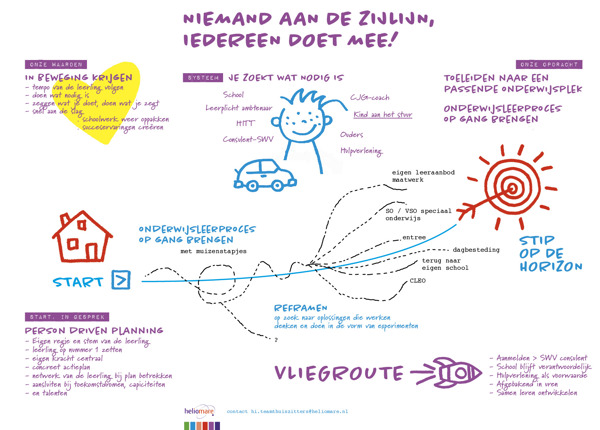 NIEMAND AAN DE ZIJLIJN,
IEDEREEN DOET MEE!
ONZE WAARDEN
IN BEWEGING KRIJGEN
- tempo van de leerling volgen
- doen wat nodig is
- zeggen wat je doet, doen wat je zegt
- snel aan de slag
schoolwerk weer oppakken
succeservaringen creëren
SYSTEEM
JE ZOEKT WAT NODIG IS
School
Leerplicht ambtenaar
HITT
Consulent-SWV
CJG-coach
Kind aan het stuur
Ouders
Hulpverlening
ONZE OPDRACHT
TOELEIDEN NAAR EEN
PASSENDE ONDERWIJSPLEK
ONDERWIJSLEERPROCES
OP GANG BRENGEN
START >
ONDERWIJSLEERPROCES
OP GANG BRENGEN
met muizenstapjes
eigen leeraanbod
maatwerk
SO / VSO speciaal
onderwijs
entree
dagbesteding
terug naar
eigen school
CLEO
?
STIP
OP DE
HORIZON
REFRAMEN
op zoek naar oplossingen die werken
denken en doen in de vorm van experimenten
START: IN GESPREK
PERSON DRIVEN PLANNING
- Eigen regie en stem van de leerling
- leerling op nummer 1 zetten
- eigen kracht centraal
- concreet actieplan
- netwerk van de leerling bij plan betrekken
- aansluiten bij toekomstdromen, capiciteiten
- en talenten
VLIEGROUTE
- Aanmelden > SWV consulent
- School blijft verantwoordelijk
- Hulpverlening als voorwaarde
- Afgebakend in uren
- Samen leren ontwikkelen
heliomare
contact hi.teamthuiszitters@heliomare.nl